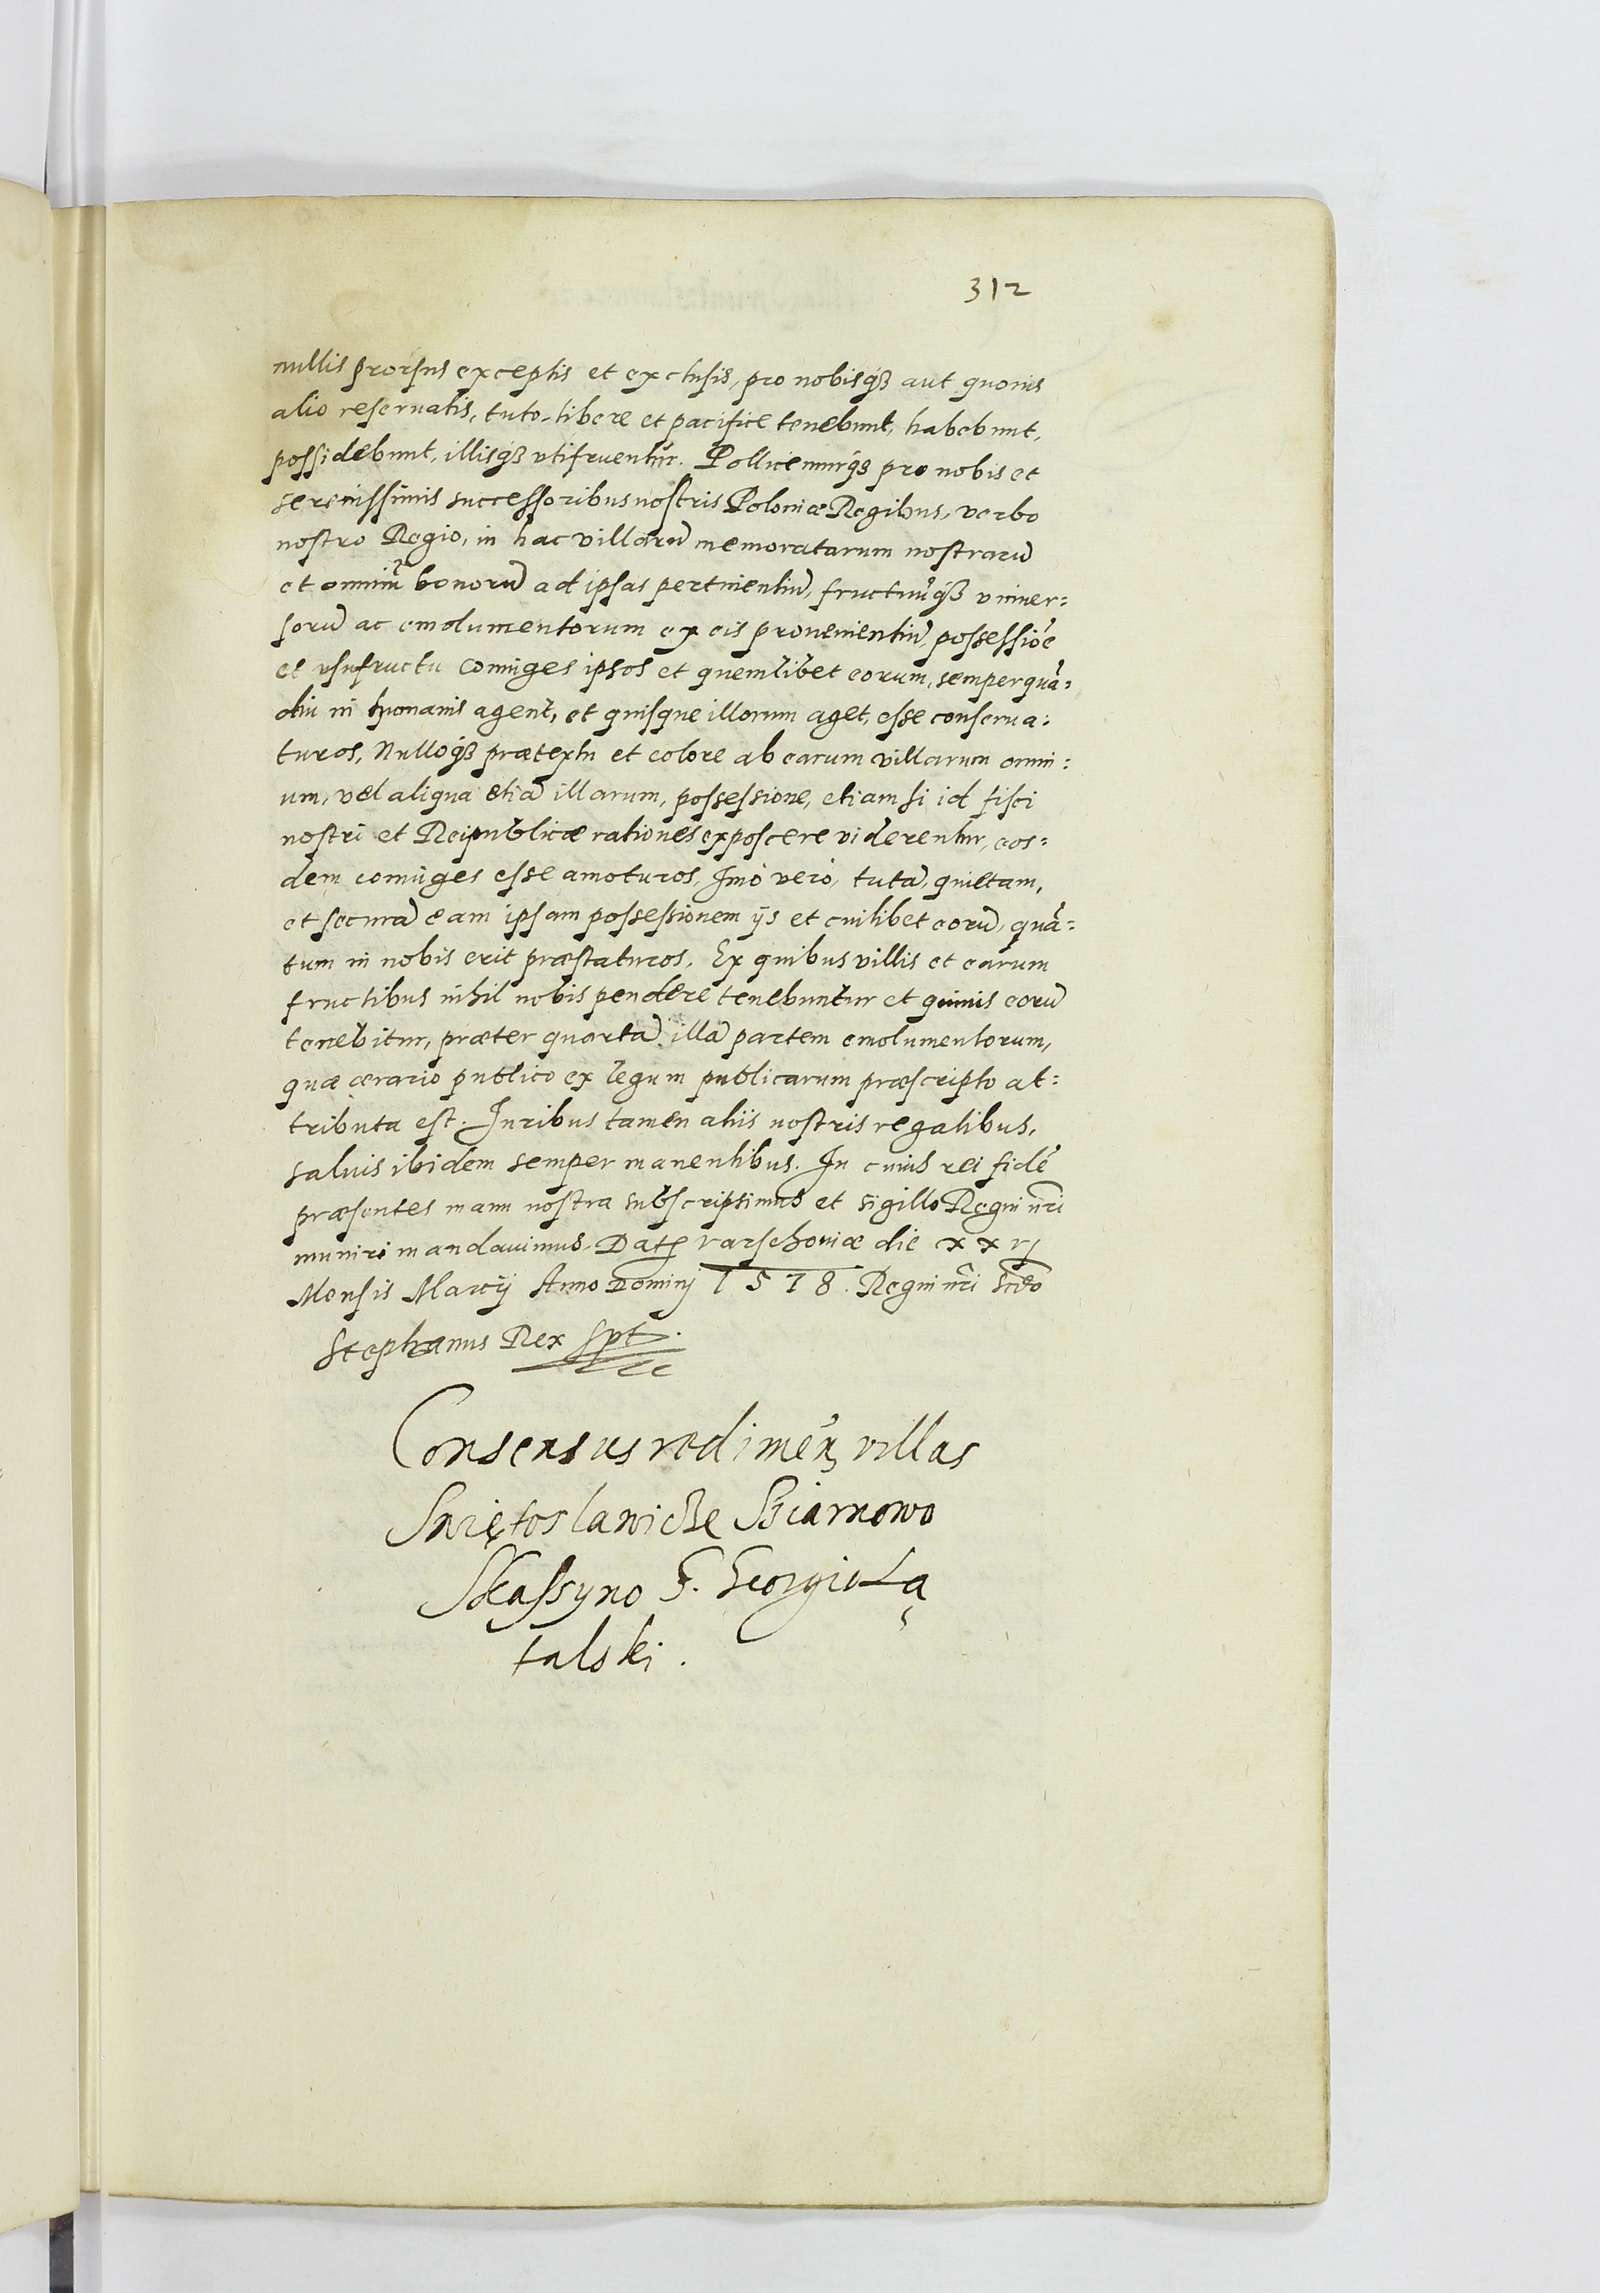 312
nullis prorsus exceptis et exclusis, pro nobisq3 aut quouis
alio reseruatis, tuto, libere et pacifice tenebunt, habebunt,
possidebunt, illisq3 vtifruentur. Pollicemurq3 pro nobis et
serenissimis successoribus nostris Poloniæ Regibus, verbo
nostro Regio, in hac villarū memoratarum nostrarū
et omniū bonorū ad ipsas pertinentiū, fructuūq3 vniuer=
sorū ac emolumentorum ex eis prouenientiū, possessiōe
et vsufructu coniuges ipsos et quemlibet eorum, semper quā=
diu in humanis agent, et quisque illorum aget, esse conserua=
turos, Nulloq3 prætextu et colore ab earum villarum omni=
um, vel aliqua etiā illarum, possessione, etiam si id fisci
nostri et Reipublicæ rationes exposcere viderentur, eos=
dem coniuges esse amoturos, Imò verò, tutā, quietam,
et securā eam ipsam possessionem ijs et cuilibet eorū, quā=
tum in nobis erit præstaturos. Ex quibus villis et earum
fructibus nihil nobis pendere tenebuntur et quiuis eorū
tenebitur, præter quartā illā partem emolumentorum,
quæ ærario publico ex legum publicarum præscripto at=
tributa est. Iuribus tamen aliis nostris regalibus,
saluis ibidem semper manentibus. In cuius rei fidē
præsentes manu nostra subscripsimus et sigillo Regni nri
muniri mandauimus. Dat Varschouiæ die xxvj
Mensis Marcij Anno Dominj 1578. Regni nri Scdo
Stephanus Rex spt.
Consensus redimen villas
Swiętoslawicze Sbiarnowo
Skassyno G. Georgio Lą
talski.